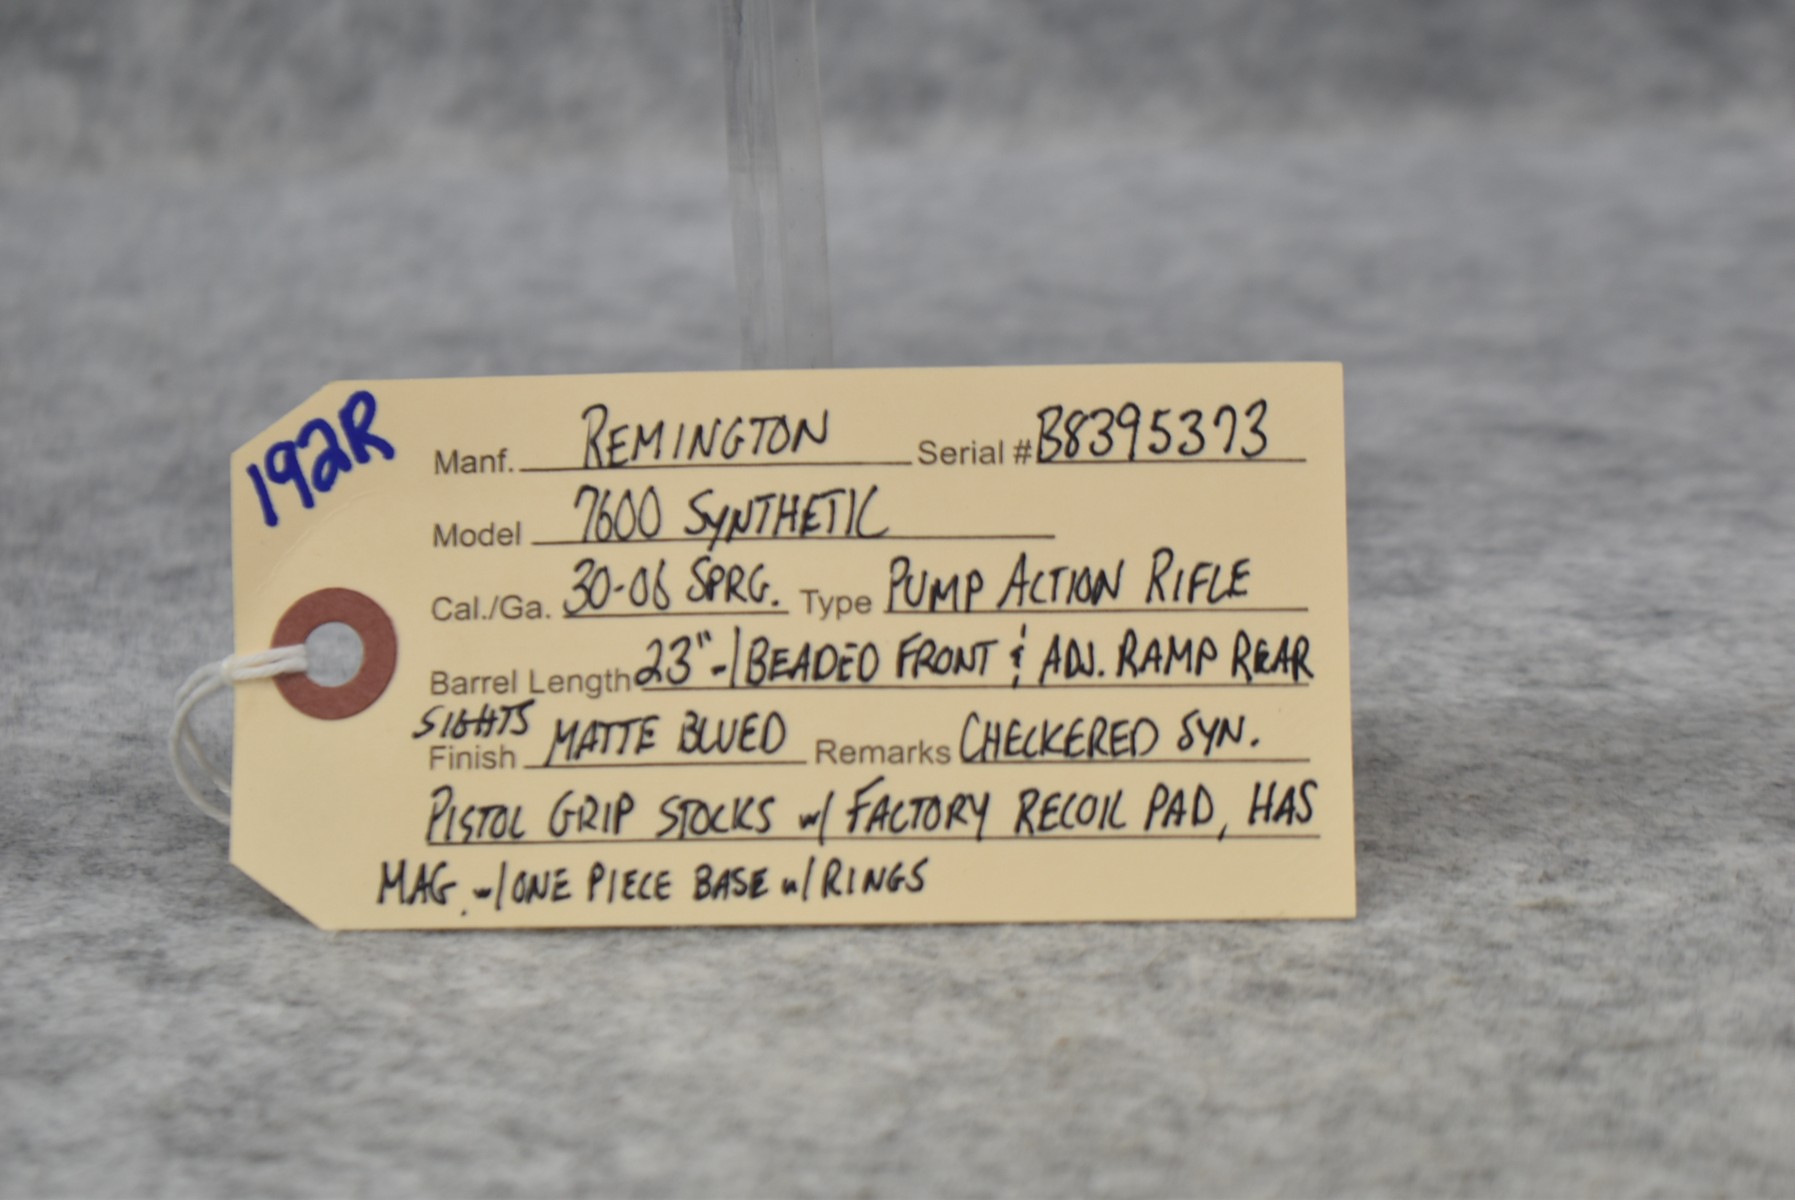 192R
Manf. REMINGTON Serial # B8395373
Model 7600 SYNTHETIC
Cal./Ga. 30-06 SPRG. Type PUMP ACTION RIFLE
Barrel Length 23" -/BEADED FRONT & ADJ. RAMP REAR
SIGHTS
Finish MATTE BLUED Remarks CHECKERED SYN.
PISTOL GRIP STOCKS w/ FACTORY RECOIL PAD, HAS
MAG. w/ONE PIECE BASE w/RINGS